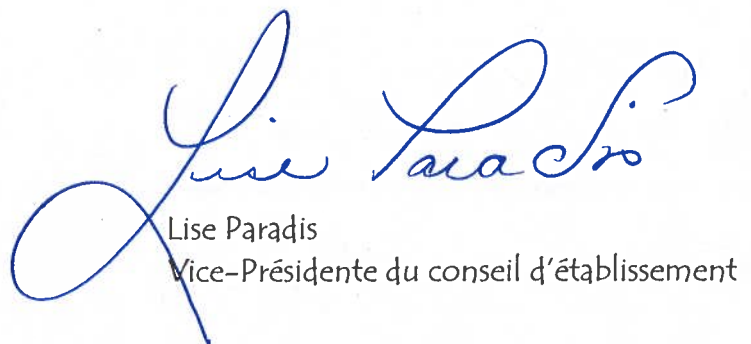 Lise Paradis
Lise Paradis
Vice-Présidente du conseil d'établissement